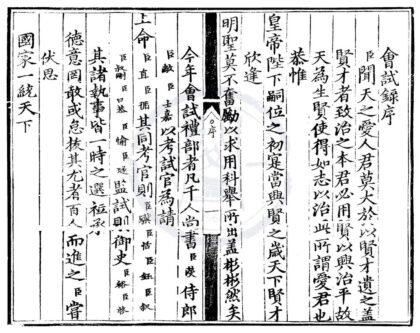 會試錄序
臣聞天之愛人君莫大於以賢才遺之蓋
賢才者致治之本君必用賢以興治平故
天為生賢使得如志以治此所謂愛君也
恭惟
皇帝陛下嗣位之初寔當興賢之歲天下賢才
欣逢
明聖莫不奮勵以求用科舉所出蓋彬彬然矣
序
今年會試禮部者凡千人尚書臣濙侍郎
臣敞臣士嘉以考試官為請
上命臣直臣 其同考官則臣 臣 臣鈺臣叔
臣叔剛臣 臣愉臣 監試則御史臣 臣
其諸執事皆一時之選祗承
德意罔敢或怠拔其尤者百人而進之臣嘗
伏思
國家一統天下